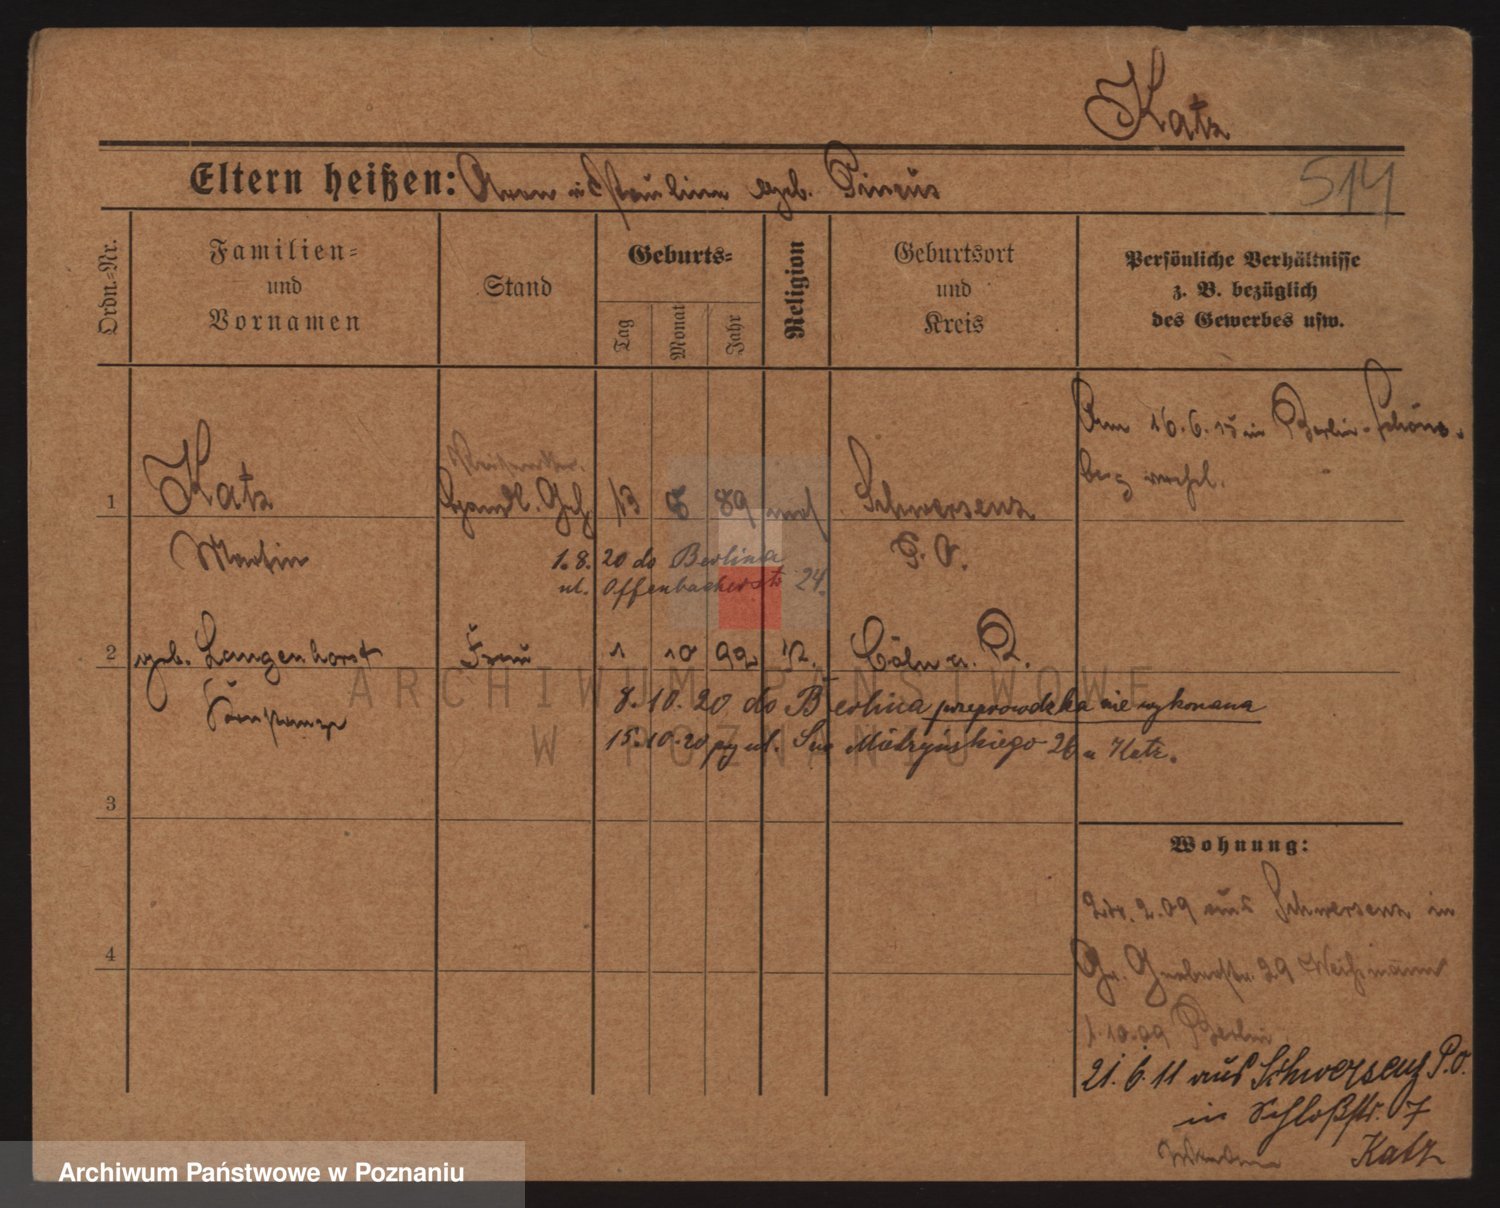 Katz
514
Eltern heißen: Aron u Pauline geb. Pincus
Ordn.-Nr.
Familien-
und
Vornamen
Stand
Geburts-
Tag
Monat
Jahr
Religion
Geburtsort
und
Kreis
Persönliche Verhältnisse
z. B. bezüglich
des Gewerbes usw.
Am 16.6.15 in Berlin-Schöne-
berg verehel.
1
Katz
Handl. Geh
13 8 89 mos
Schwersenz
Martin
P. O.
1.8. 20 do Berlina
ul. Offenbacherstr 24.
2
geb. Langenhorst
Frau
1 10 92
Cöln a. R.
8.10.20 do Berlina przeprowadzka nie wykonana
15.10.20 ul. Mielżyńskiego 26 u Katz.
3
4
Wohnung:
2.09 aus Schwersenz in
Gr. Gerberstr. 29
1.10.09 Berlin
21.6.11 aus Schwersenz P.O.
in Schloßstr. 7
Katz
ARCHIWUM PAŃSTWOWE
W POZNANIU
Archiwum Państwowe w Poznaniu